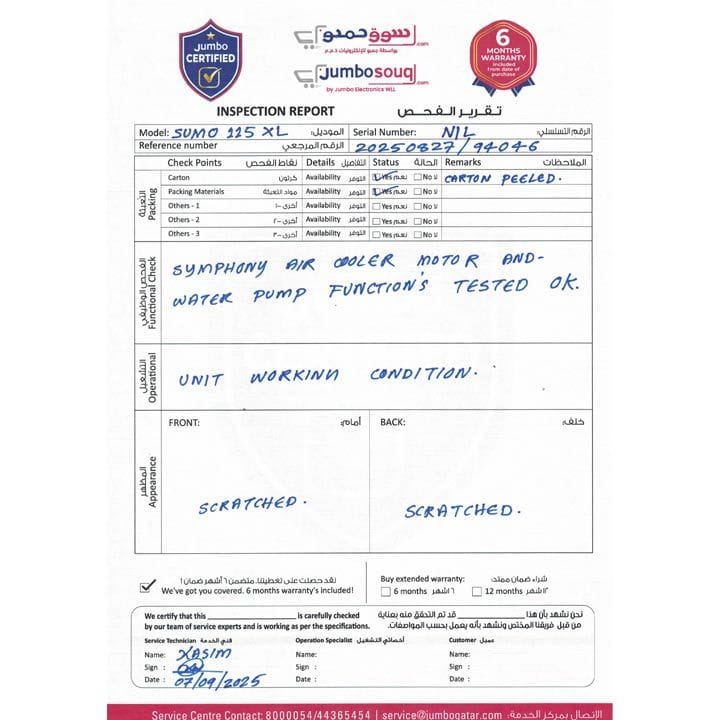 Jumbo
CERTIFIED
سوق جمبو.com
بواسطة جمبو للإلكترونيات ذ.م.م
jumbosouq.com
by Jumbo Electronics WLL
6
MONTHS
WARRANTY
included
from date of
purchase
INSPECTION REPORT تقرير الفحص
Model: SUMO 115 XL الموديل: Serial Number: NIL الرقم التسلسلي:
Reference number الرقم المرجعي 20250827/94046
Check Points نقاط الفحص Details التفاصيل Status الحالة Remarks الملاحظات
التعبئة Packing
Carton كرتون Availability التوفر Yes نعم No لا CARTON PEELED.
Packing Materials مواد التعبئة Availability التوفر Yes نعم No لا
Others - 1 أخرى -١ Availability التوفر Yes نعم No لا
Others - 2 أخرى -٢ Availability التوفر Yes نعم No لا
Others - 3 أخرى -٣ Availability التوفر Yes نعم No لا
الفحص الوظيفي Functional Check
SYMPHONY AIR COOLER MOTOR AND-
WATER PUMP FUNCTION'S TESTED OK.
التشغيل Operational
UNIT WORKINN CONDITION.
المظهر Appearance
FRONT: أمام:
SCRATCHED.
BACK: خلف:
SCRATCHED.
لقد حصلت على تغطيتنا. متضمن ٦ أشهر ضمان!
We've got you covered. 6 months warranty's included!
Buy extended warranty: شراء ضمان ممتد:
6 months ٦ اشهر 12 months ١٢ اشهر
We certify that this is carefully checked
by our team of service experts and is working as per the specifications.
نحن نشهد بأن هذا قد تم التحقق منه بعناية
من قبل فريقنا المختص ونشهد بأنه يعمل بحسب المواصفات.
Service Technician فني الخدمة
Name: KASIM
Sign :
Date : 07/09/2025
Operation Specialist أخصائي التشغيل
Name:
Sign :
Date :
Customer عميل
Name:
Sign :
Date :
Service Centre Contact: 8000054/44365454 | service@jumboqatar.com الاتصال بمركز الخدمة: